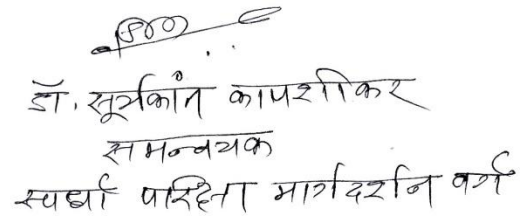 डॉ. सूर्यकांत कापशीकर
समन्वयक
स्पर्धा परिक्षा मार्गदर्शन वर्ग